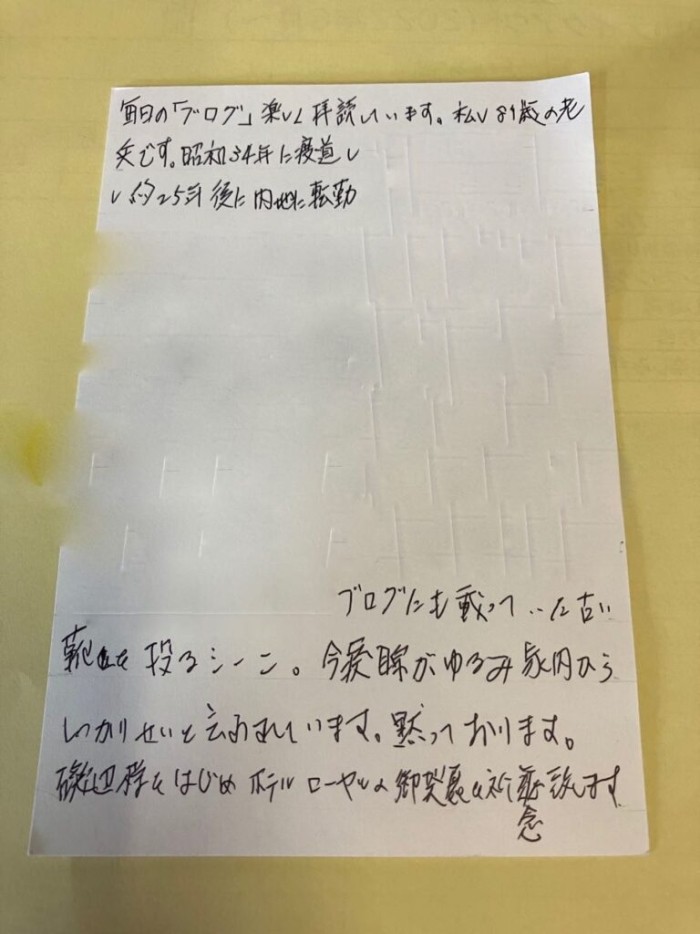 毎日の「ブログ」楽しく拝読しています。私し81歳の老
夫です。昭和34年に渡道し
い約25年後に内地に転勤
ブログにも載っていた古い
靴を投るシーン。今涙腺がゆるみ家内から
しっかりせいと云われています。黙っております。
様をはじめ ホテルローヤルの御発展を祈念致します